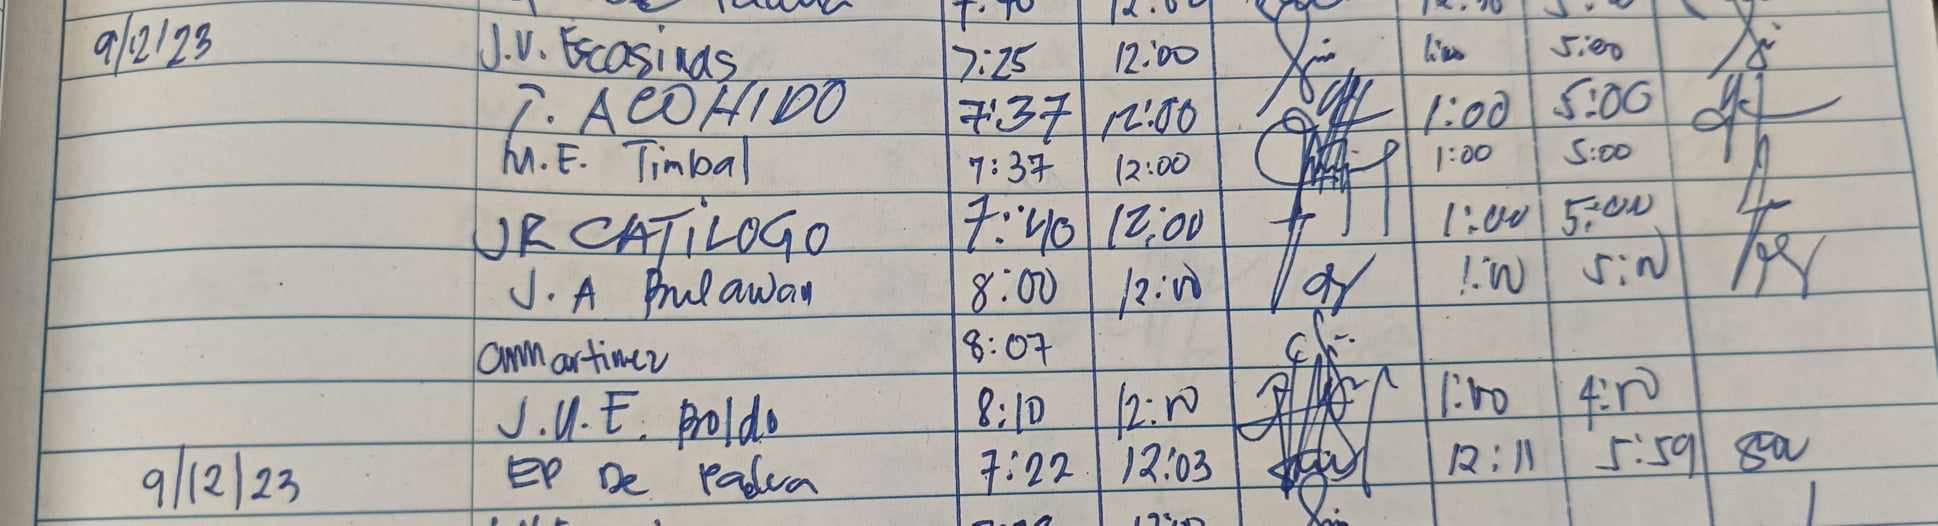 9/12/23 J.V. Escasinas 7:25 12:00 1:00 5:00
T. ACOHIDO 7:37 12:00 1:00 5:00
M.E. Timbal 7:37 12:00 1:00 5:00
JR CATILOGO 7:40 12:00 1:00 5:00
J.A Bulawan 8:00 12:00 1:00 5:00
ammartinez 8:07
J.U.E. Boldo 8:10 12:00 1:00 4:00
9/12/23 EP De Padua 7:22 12:03 12:11 5:59